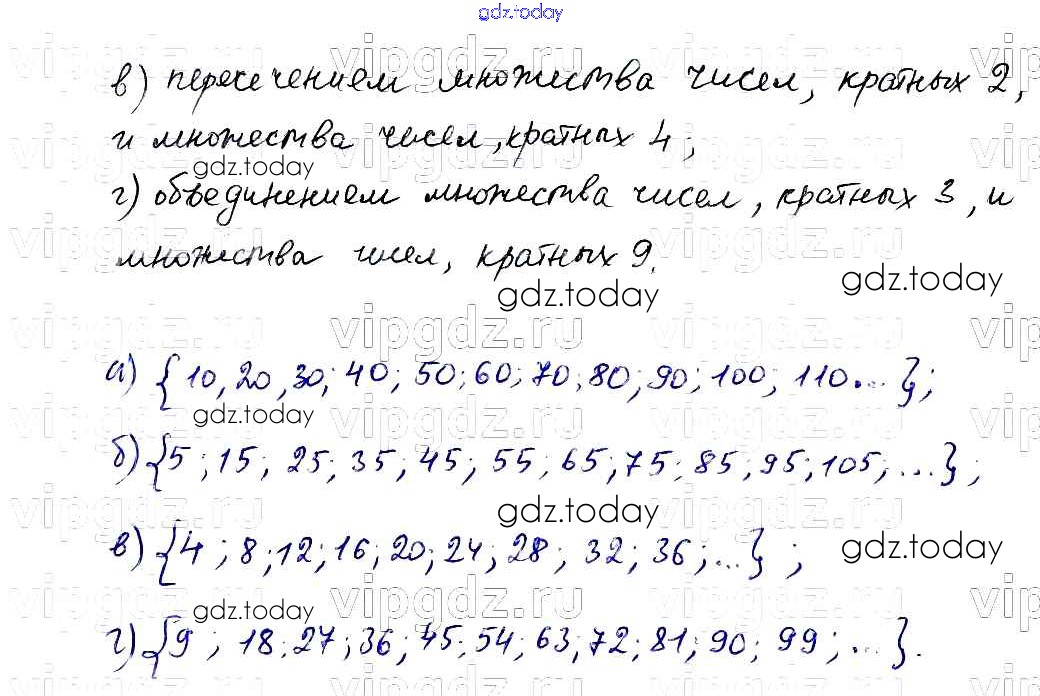 gdz.today
в) пересечением множества чисел, кратных 2,
и множества чисел, кратных 4;
gdz.today
г) объединением множества чисел, кратных 3, и
vipgdz.ru
множества чисел, кратных 9.
gdz.today
gdz.today
vipgdz.ru
а) {10, 20, 30; 40; 50; 60; 70; 80; 90; 100; 110... };
gdz.today
б) {5; 15; 25; 35; 45; 55; 65; 75; 85; 95; 105; ...};
vipgdz.ru
gdz.today
в) {4; 8; 12; 16; 20; 24; 28; 32; 36; ...};
gdz.today
gdz.today
vipgdz.ru
г) {9; 18; 27; 36; 45; 54; 63; 72; 81; 90; 99; ...}.